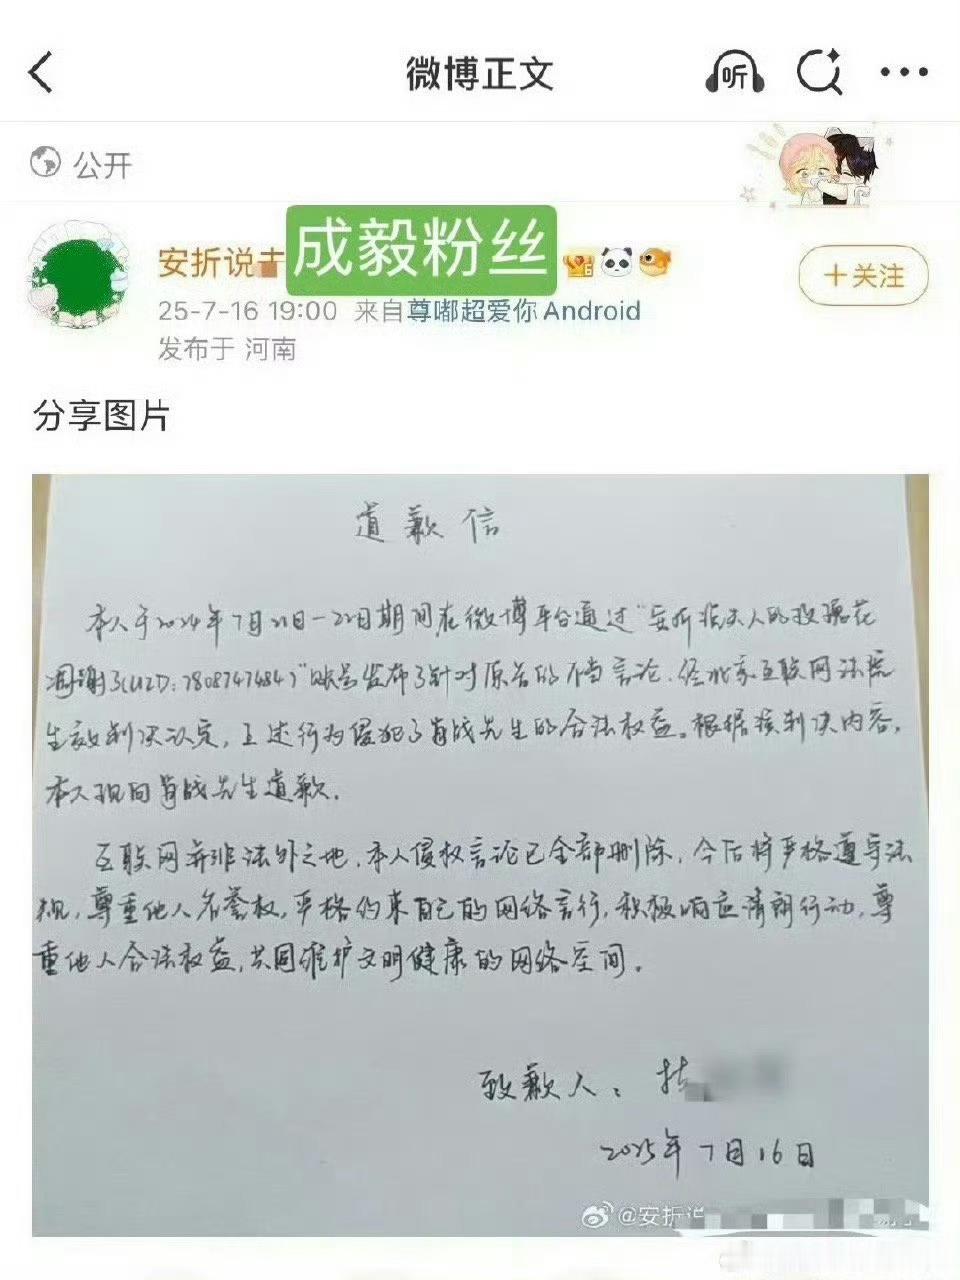 微博正文
听
公开
安折说
成毅粉丝
6
25-7-16 19:00 来自尊嘟超爱你Android
发布于 河南
+关注
分享图片
道歉信
本人于2024年7月21日-22日期间在微博平台通过"安折说夫人的玫瑰花
凋谢了(UID:7808747484)"账号发布了针对原告的不当言论,经北京互联网法院
生效判决认定,上述行为侵犯了肖战先生的合法权益。根据该判决内容,
本人现向肖战先生道歉.
互联网并非法外之地,本人侵权言论已全部删除,今后将严格遵守法
规,尊重他人名誉权,严格约束自己的网络言行,积极响应清朗行动,尊
重他人合法权益,共同维护文明健康的网络空间。
致歉人:
2025年7月16日
@安折说